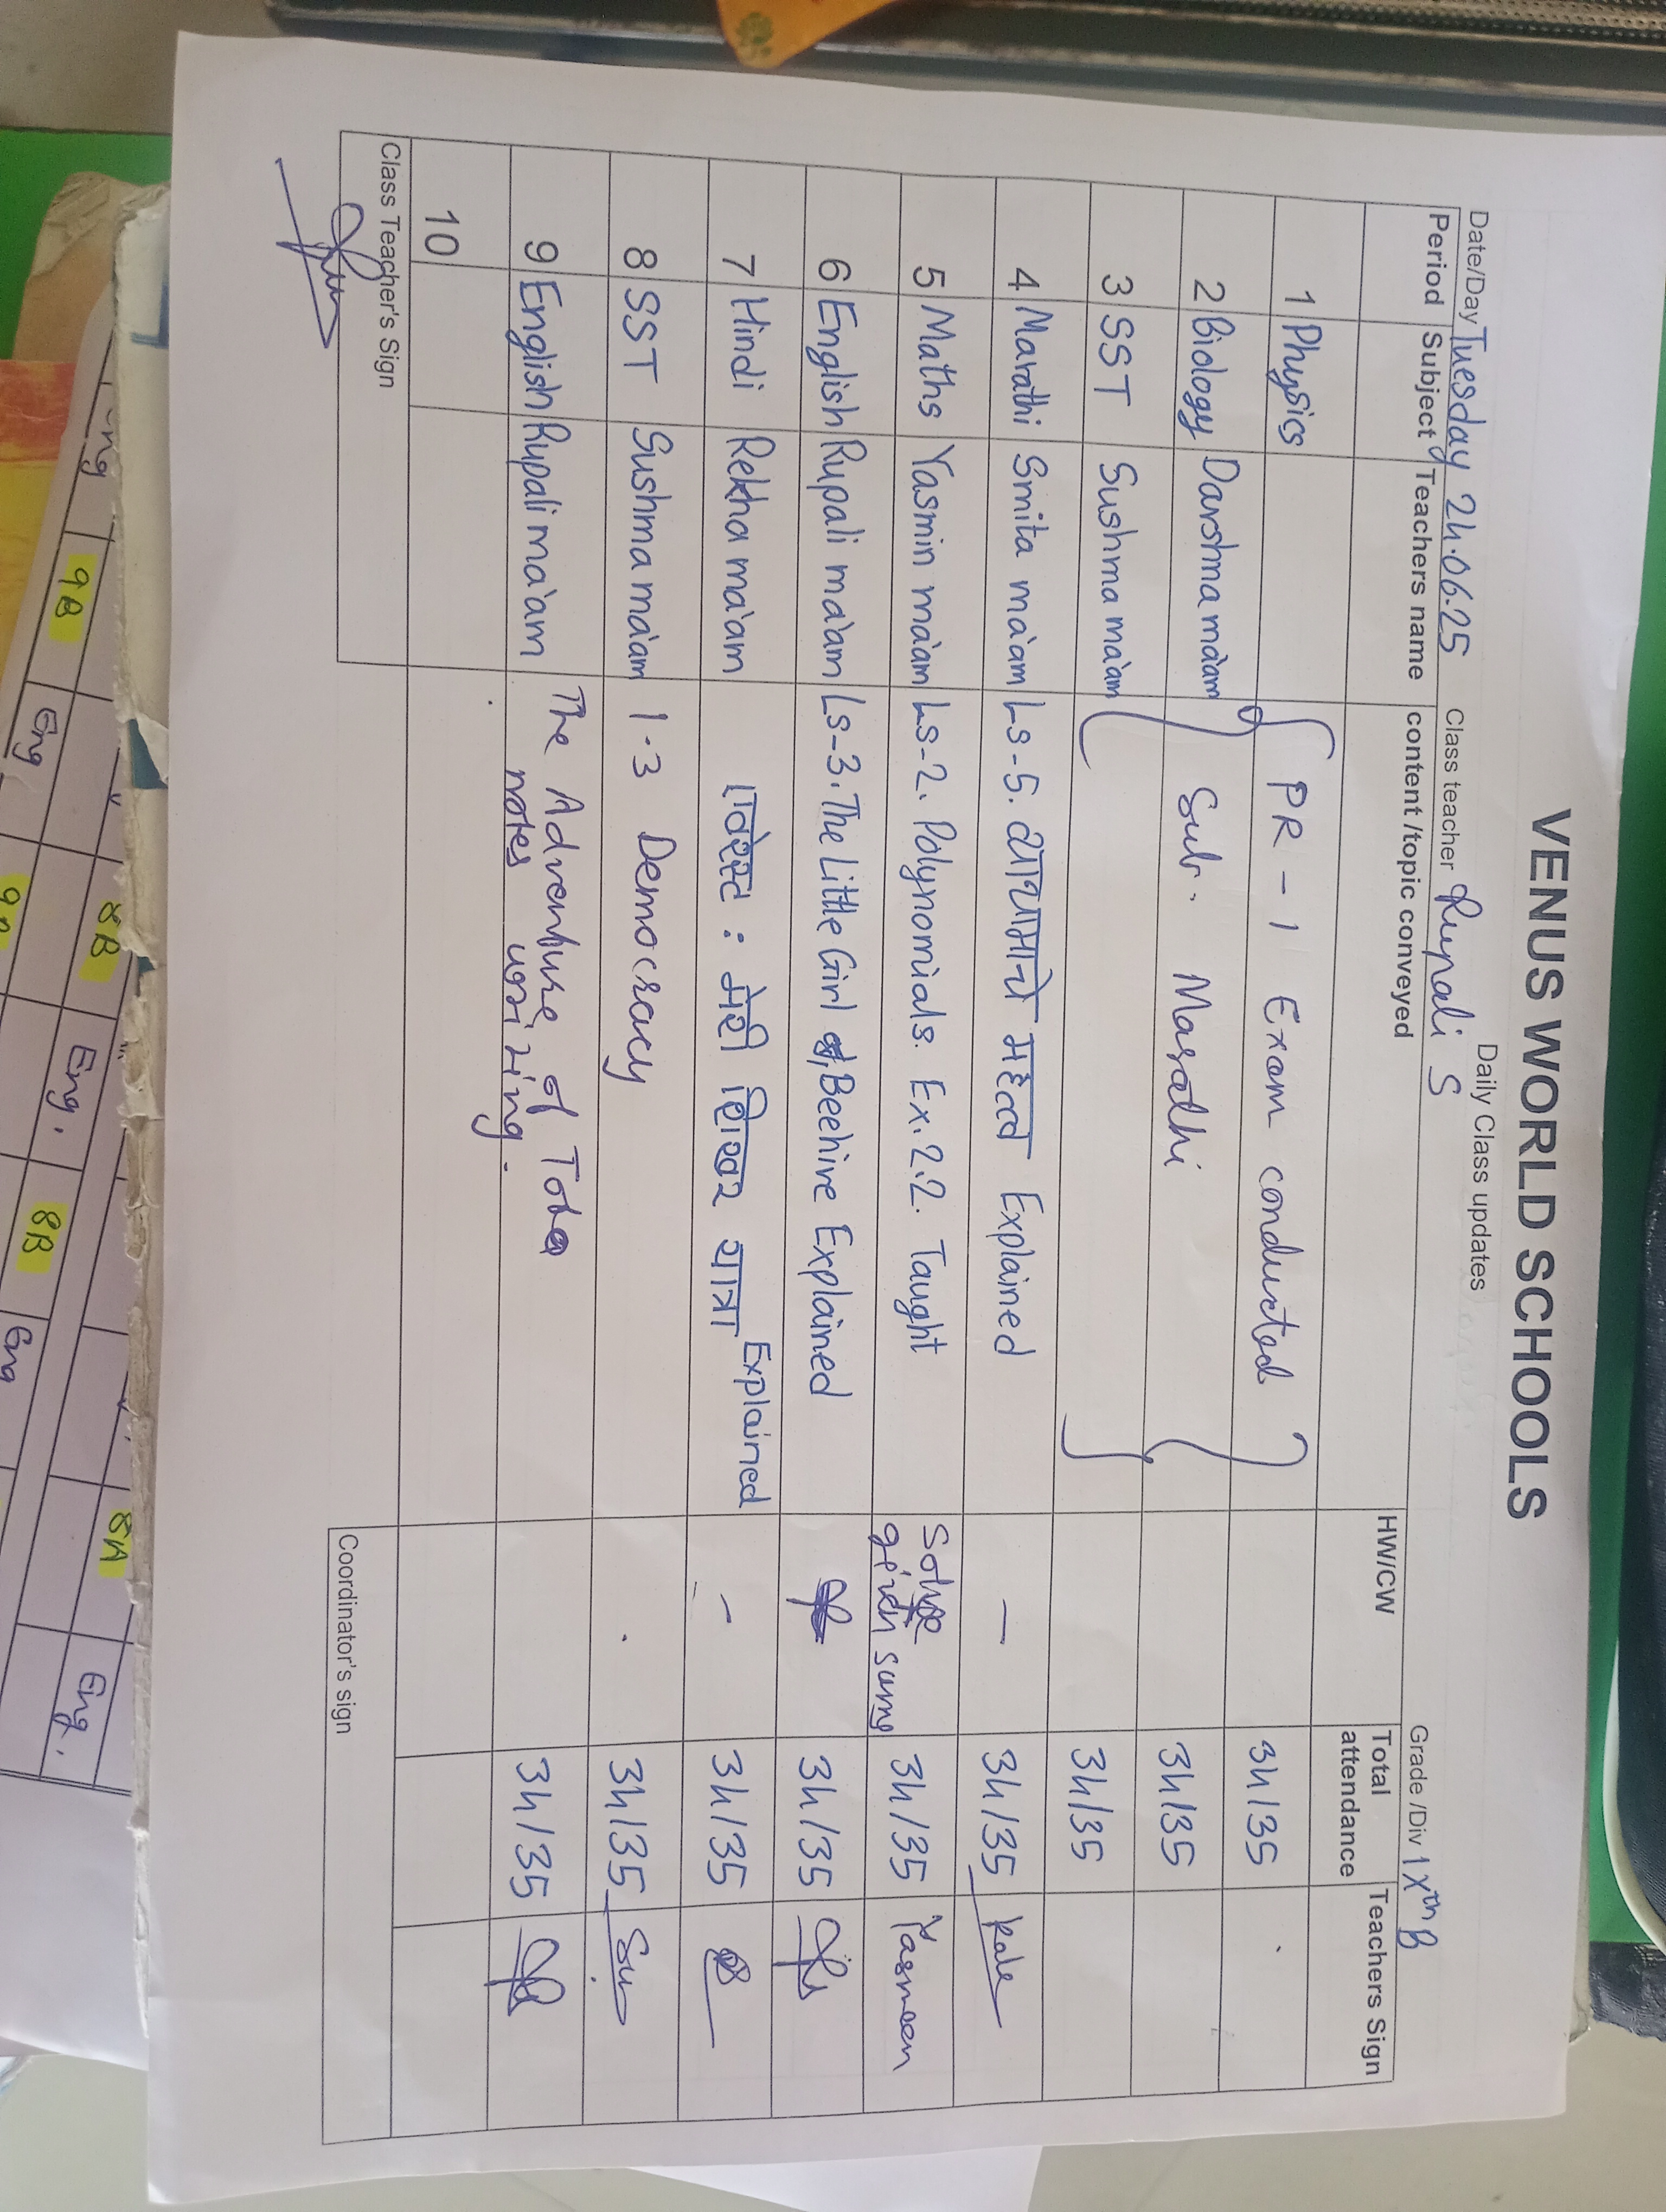 VENUS WORLD SCHOOLS
Daily Class updates
Date/Day Tuesday 24.06.25 Class teacher Rupali S Grade /Div IXth B
Period Subject Teachers name content /topic conveyed HW/CW Total attendance Teachers Sign
1 Physics PR - 1 Exam conducted 34/35
2 Biology Darshma ma'am Sub. Marathi 34/35
3 SST Sushma ma'am 34/35
4 Marathi Smita ma'am Ls-5. व्यायामाचे महत्व Explained — 34/35 Kale
5 Maths Yasmin ma'am Ls-2. Polynomials. Ex.2.2. Taught Solve given sums 34/35 Yasmeen
6 English Rupali ma'am Ls-3. The Little Girl Beehive Explained 34/35
7 Hindi Rekha ma'am एवरेस्ट : मेरी शिखर यात्रा Explained - 34/35
8 SST Sushma ma'am 1.3 Democracy 34/35
9 English Rupali ma'am The Adventure of Toto 34/35
notes writing.
10
Class Teacher's Sign Coordinator's sign
9B
Eng
8B
Eng.
8B
Eng
8A
Eng.